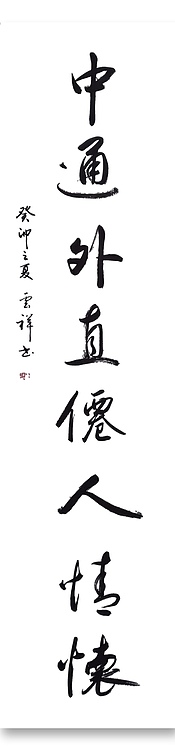 中通外直僊人情懷
癸卯之夏 雲祥书